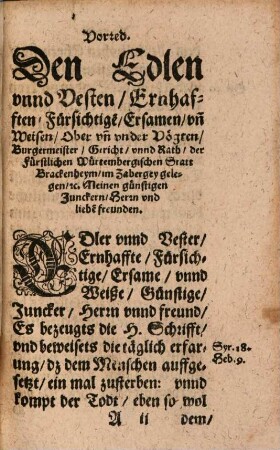 Vorred.
Den Edlen
vnnd Vesten / Ernhaf-
ften / Fürsichtigẽ / Ersamen / vñ
Weisen / Ober vñ vnder Vögten /
Burgermeister / Gericht / vnnd Rath / der
Fürstlichen Würtembergischen Statt
Brackenheym / im Zabergey gele-
gen / ꝛc. Meinen günstigen
Junckern / Herrn vnd
liebẽ freunden.
EDler vnnd Vester /
Ernhaffte / Fürsich-
tige / Ersame / vnnd
Weiße / Günstige /
Juncker / Herrn vnnd freund /
Es bezeugts die H. Schrifft /
vnd beweisets die täglich erfar-
ung / dz dem Menschen auffge-
setzt / ein mal zusterben: vnnd
kompt der Todt / eben so wol
Syr. 18.
Heb. 9.
A ii dem /